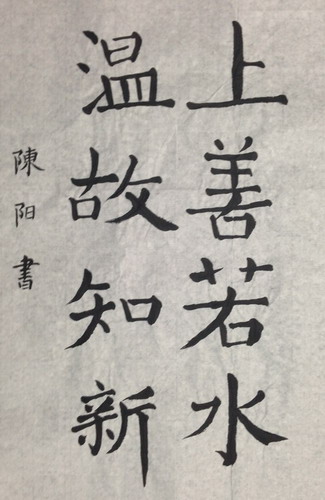 上善若水
温故知新
陳阳書